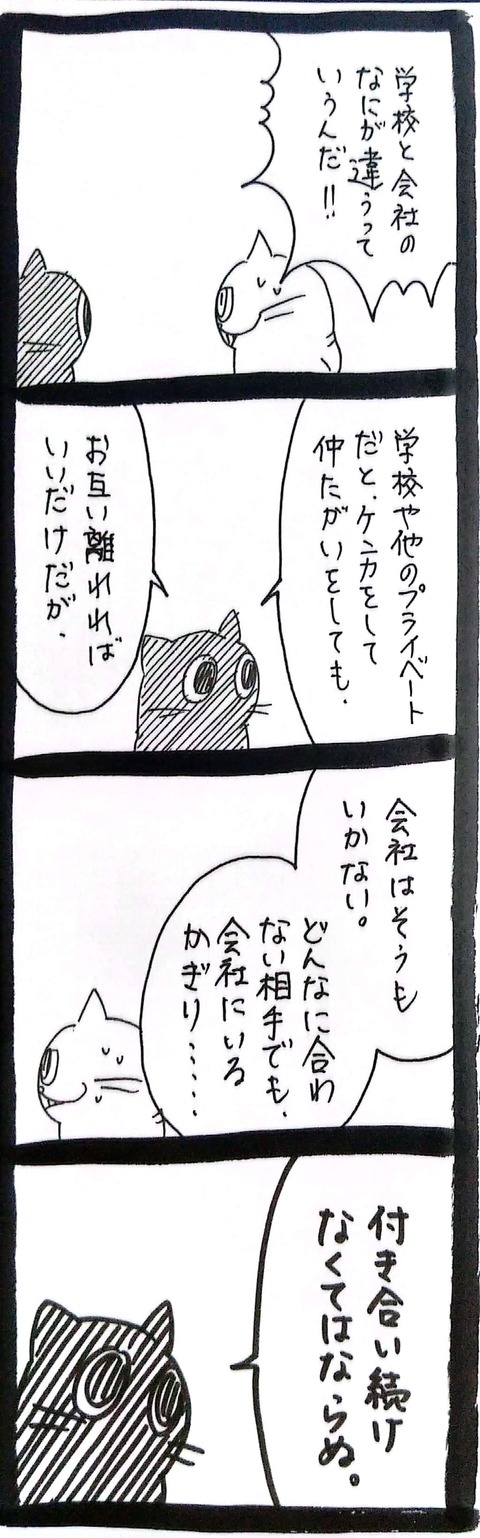 学校と会社の
なにが違うって
いうんだ!!
学校や他のプライベート
だと、ケンカをして
仲たがいをしても、
お互い離れれば
いいだけだが、
会社はそうも
いかない。
どんなに合わ
ない相手でも、
会社にいる
かぎり……
付き合い続け
なくてはならぬ。